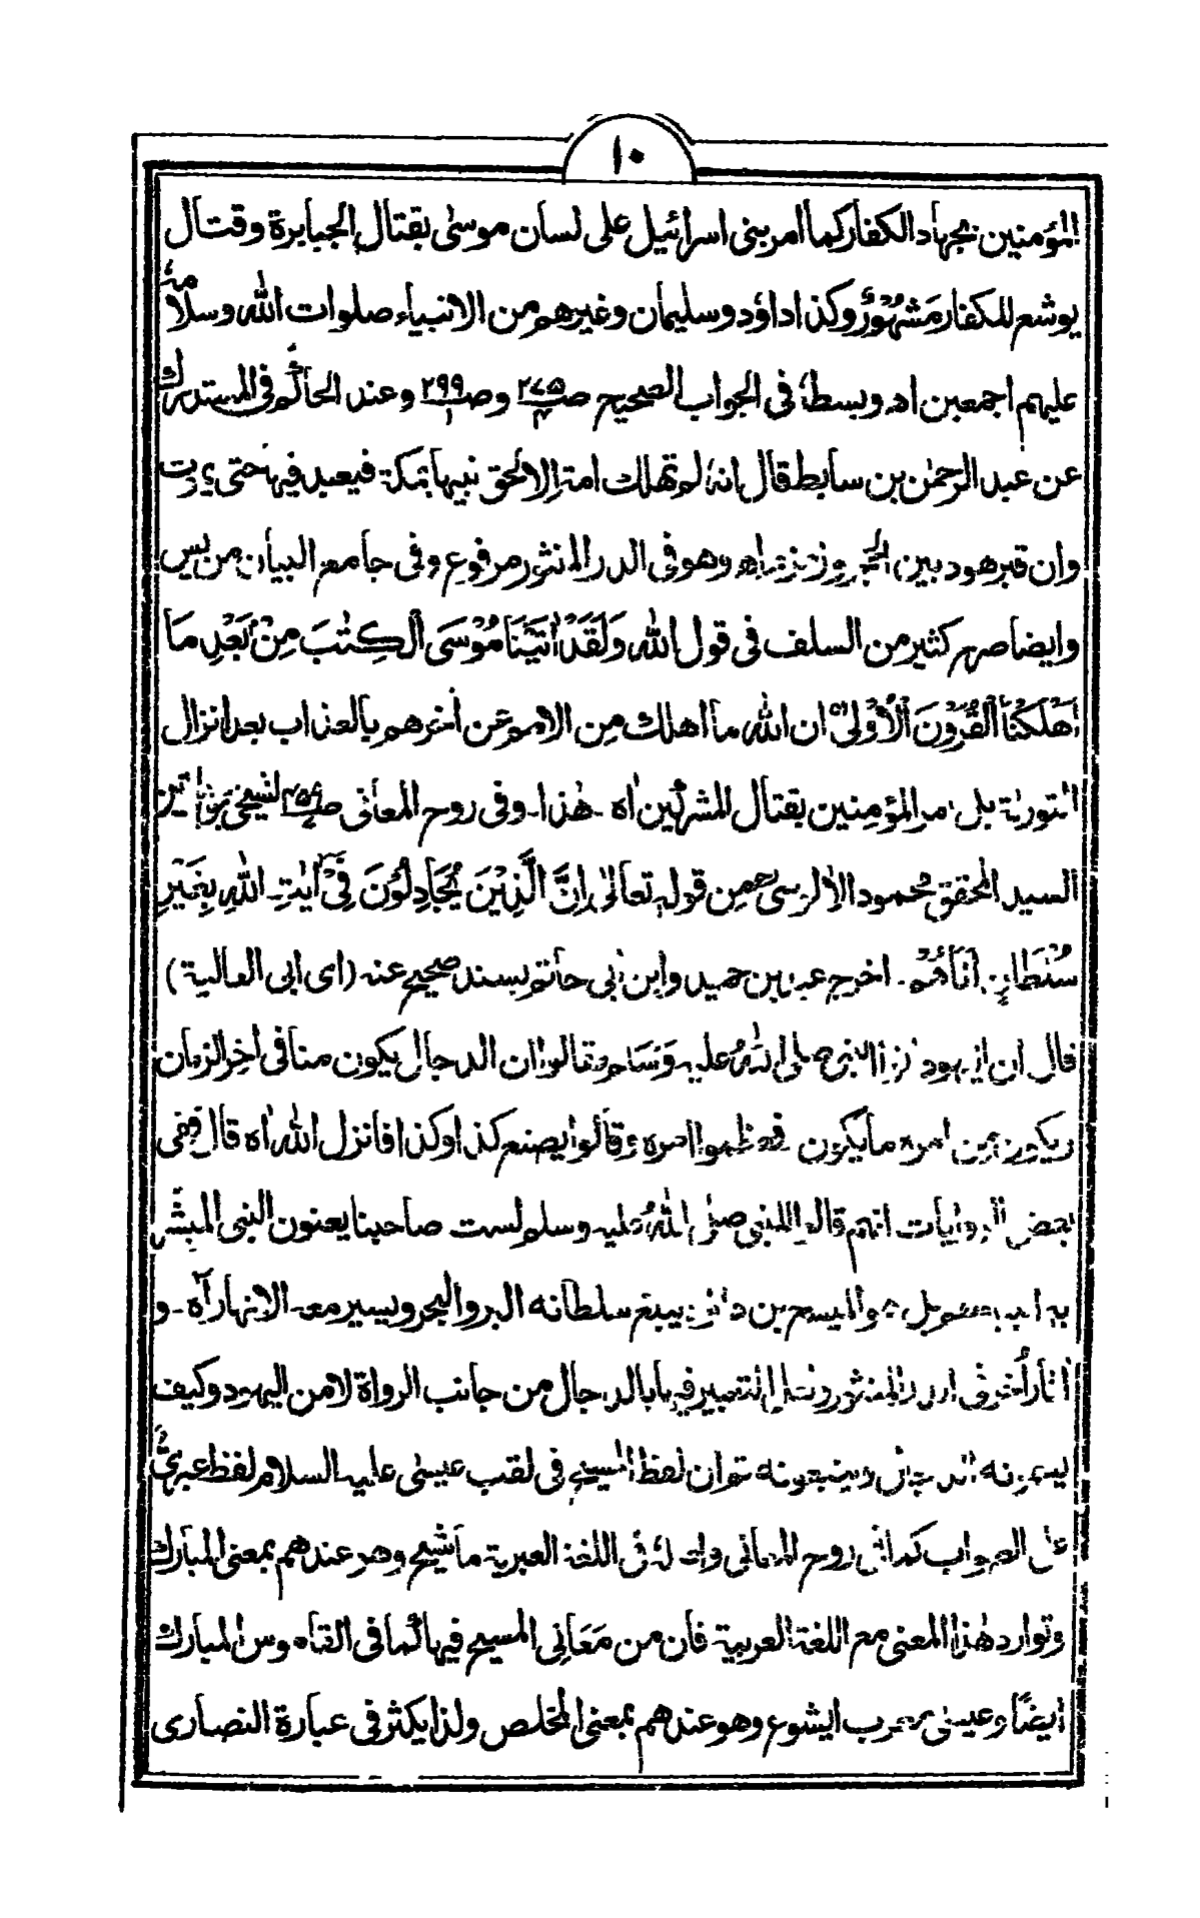 ١٠
المؤمنين بجهاد الكفار كما امر بنى اسرائيل على لسان موسىٰ بقتال الجبابرة وقتال
يوشع للكفار مَشْهُوْرٌ وكذا داؤد وسليمان وغيرهم من الانبياء صلوات الله وسلامه
عليهم اجمعين اه وبسطه فى الجواب الصحيح ص٢٧٥ وص٢٩٩ وعند الحاكم فى المستدرك
عن عبد الرحمٰن بن سابط قال انه لم تهلك امة الا لحق نبيها بمكة فيعبد فيها حتى يموت
وان قبر هود بين الحجر وزمزم اه وهو فى الدر المنثور مرفوع وفى جامع البيان من يس
وايضا صرح كثير من السلف فى قول الله وَلَقَدْ اٰتَيْنَا مُوْسَى الْكِتٰبَ مِنْۢ بَعْدِ مَا
اَهْلَكْنَا الْقُرُوْنَ الْاُوْلٰى ان الله ما اهلك من الامم عن اٰخرهم بالعذاب بعد انزال
التورىٰة بل امر المؤمنين بقتال المشركين اه ـ هٰذا ـ وفى روح المعانى
السيد المحقق محمود الاٰلوسى رحمه من قوله تعالىٰ اِنَّ الَّذِيْنَ يُجَادِلُوْنَ فِىْٓ اٰيٰتِ اللهِ بِغَيْرِ
سُلْطَانٍ اَتَاهُمْ ـ اخرج عبد بن حميد وابن ابى حاتم بسند صحيح عنه (اى ابى العالية)
قال ان اليهود اتوا النبى صلى اللهُ عليه وَسَلم فقالوا ان الدجال يكون منا فى اٰخر الزمان
ويكون من امره ما يكون فعظموا امره وقالوا يصنع كذا وكذا فانزل الله اه قال وفى
بعض الروايات انهم قالوا للنبى صلى اللهُ عليه وسلم لست صاحبنا يعنون النبى المبشر
به بل هو المسيح بن داؤد يبلغ سلطانه البر والبحر ويسير معه الانهار اه ـ و
فى الدر المنثور التعبير فيه بالدجال من جانب الرواة لا من اليهود وكيف
يسمونه الدجال ويتبعونه ثم ان لفظ المسيح فى لقب عيسى عليه السلام لفظ عبرىٌّ
على الصواب كما فى روح المعانى واصله فى اللغة العبرية ماشيح وهو عندهم بمعنى المبارك
وتوارد هٰذا المعنى مع اللغة العربية فان من مَعَانِى المسيح فيها كما فى القاموس المبارك
ايضًا وعيسى معرب ايشوع وهو عندهم بمعنى المخلص ولذا يكثر فى عبارة النصارى